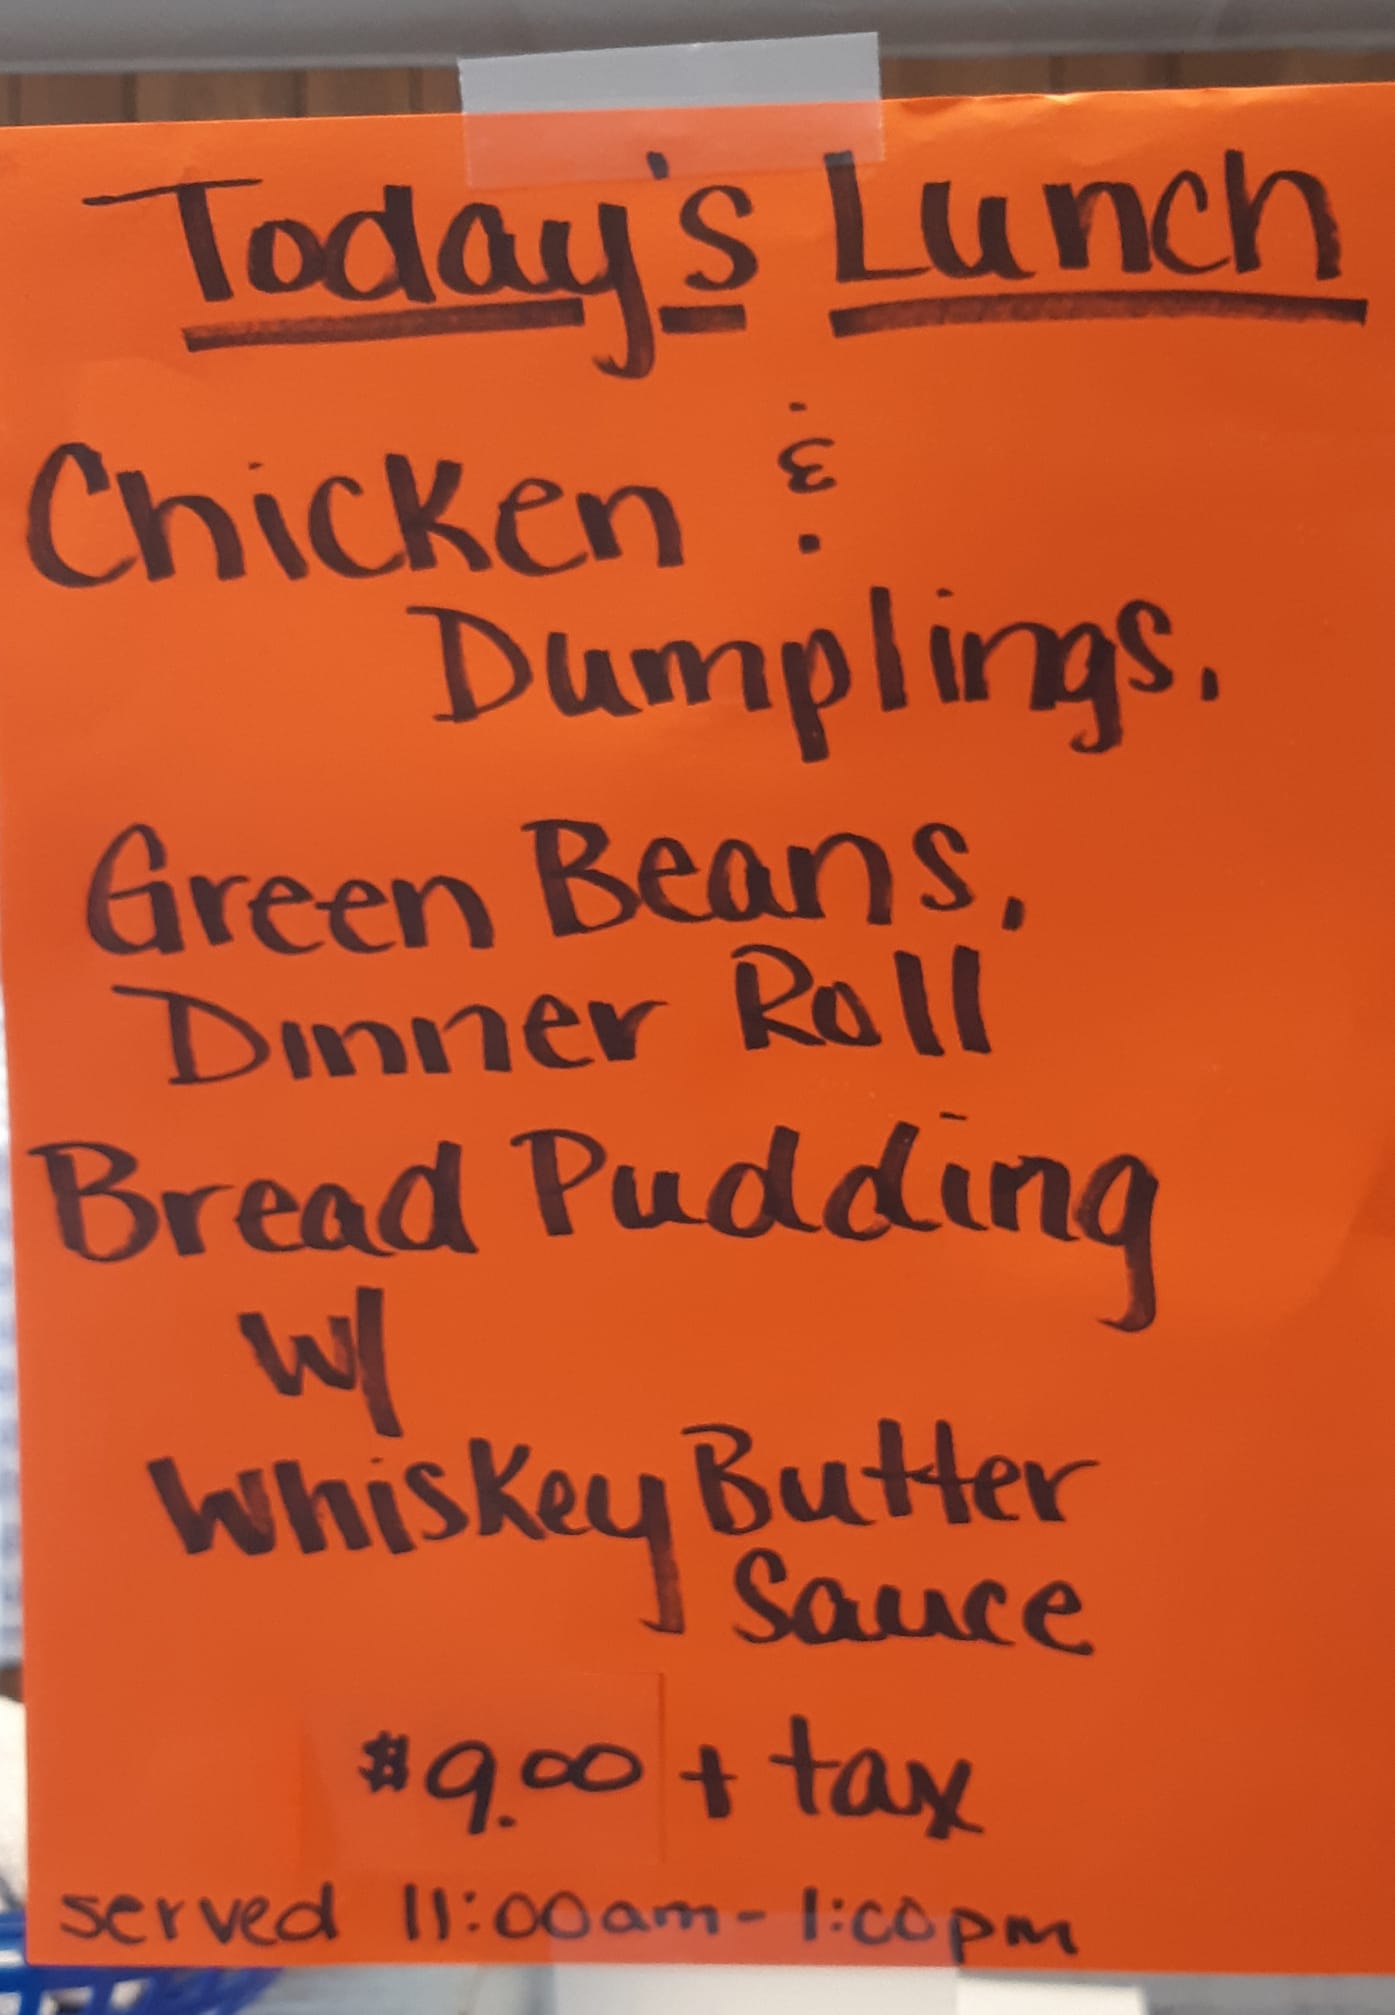 Today's Lunch
Chicken &
Dumplings,
Green Beans,
Dinner Roll
Bread Pudding
w/
Whiskey Butter
Sauce
$9.00 + tax
served 11:00am - 1:00pm